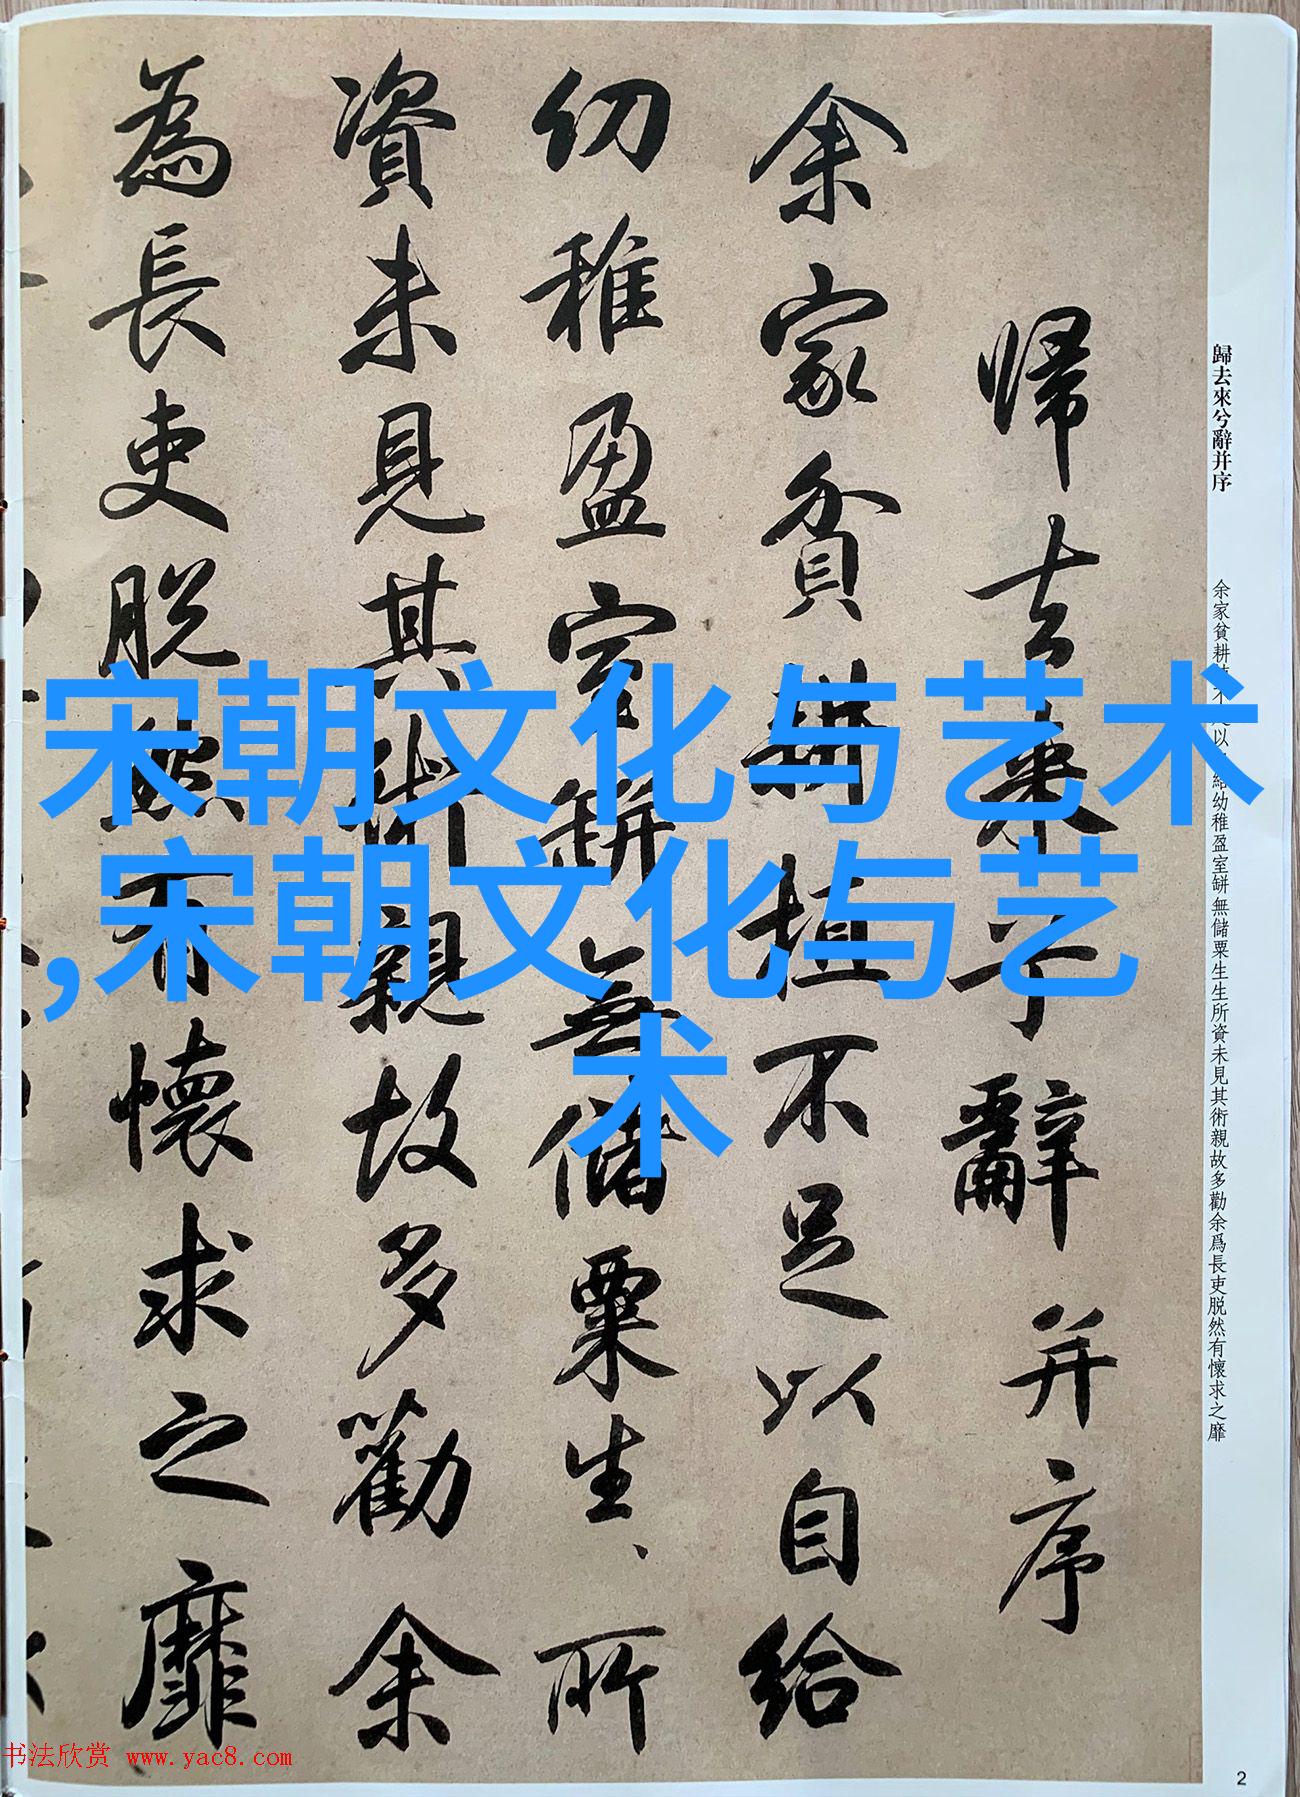 歸去來兮辭并序
余家貧耕植不足以自給幼稚盈室缾無儲粟生生所資未見其術親故多勸余爲長吏脱然有懷求之靡
帰去来兮辭并序
余家貧耕植不足以自給
幼稚盈室缾無儲粟生、所
資未見其術親故多勸余
為長吏脱然有懷求之靡
宋朝文化与艺术
,宋朝文化与艺
术
书法欣赏 www.yac8.com
2